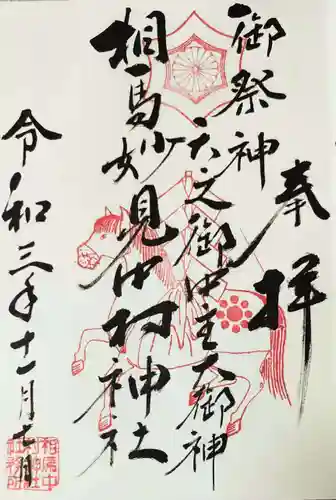 奉拝
御祭神
天之御中主大御神
相馬妙見中村神社
令和三年十一月七日
相馬中
村神社
社務所